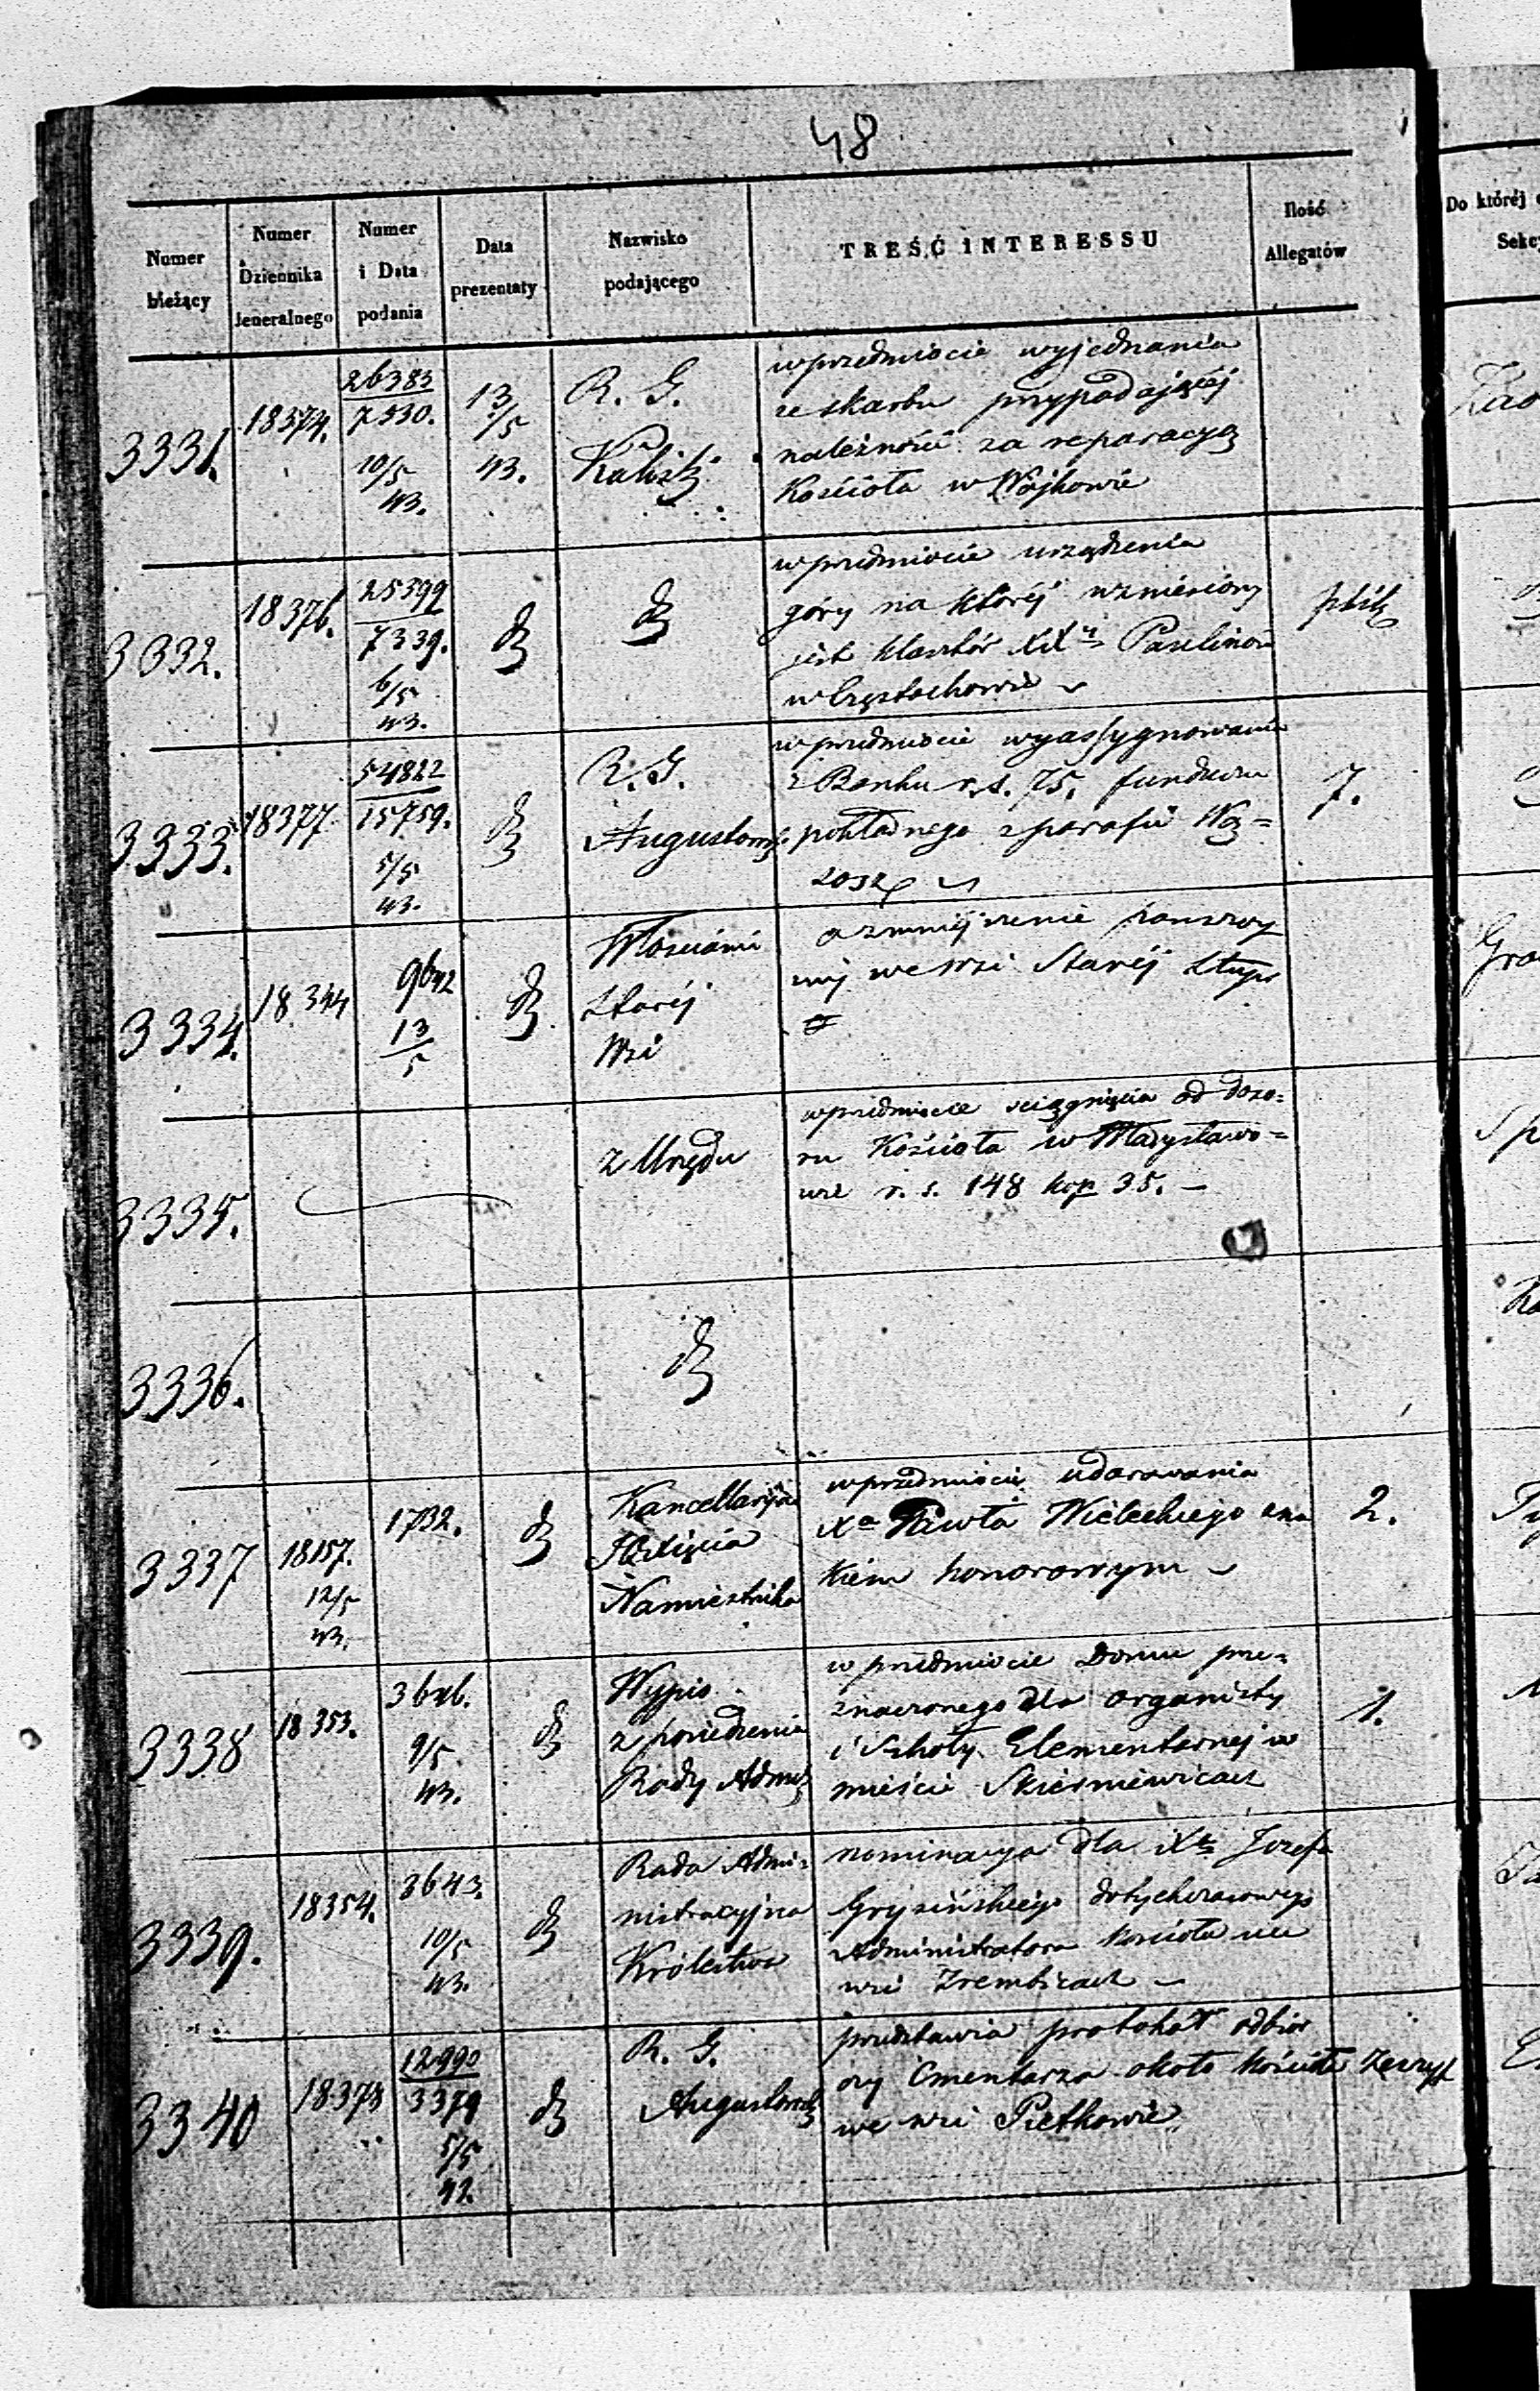 48
Numer bieżący
Numer Dziennika Jeneralnego
Numer i Data podania
Data prezentaty
Nazwisko podającego
TREŚĆ INTERESSU
Ilość Allegatów
Do której
Sekc
3331.
18374.
26383
7530.
10/5
43.
13/5
43.
R. G.
Kalisk
w przedmiocie wyjednania
ze skarbu przypadającej
należności za reparacyą
Kościoła w Wójkowie
3332.
18376.
25399
7339.
6/5
43.
w przedmiocie urządzenia
góry na której wzniesiony
jest klasztór XX Paulinow
w Częstochowie
3333.
18377
54822
15759.
5/5
43.
R. G.
Augustows
w przedmiocie wyassygnowania
z Banku r. s. 75. funduszu
pokładnego z parafii Wą=
sosz
7.
3334.
18.344
9642
13
5
Włościanie
Starej
Wsi
o zmniejszenie
we wsi Starej
3335.
z Urzędu
w przedmiocie ściągnięcia od dozo=
ru Kościoła w Władysławo=
wie r. s. 148 kop 35. –
3336.
3337
18157.
12/5
43.
1732.
Kancellaryia
Xięcia
Namiestnika
w przedmiocie udarowania
Xa Pawła Wieleckiego zna
kiem honorowym
2.
3338
18353.
9/5.
43.
Wypis
z posiedzenia
Rady Admi
w przedmiocie Domu prze=
znaczonego dla organisty
i Szkoły Elementarnej w
mieście Skierniewicach
1.
3339.
18354.
3643.
10/5
43.
Rada Admi=
nistracyjna
Królestwa
nominacya dla Xa Jozefa
dotychczasowego
Administratora kościoła we
wsi Zrembicach –
3340
18378
12990
3379
5/5
43.
R. G.
Augustows
przedstawia protokół odbior
czy Cmentarza około kościoła
we wsi Pietkowie.